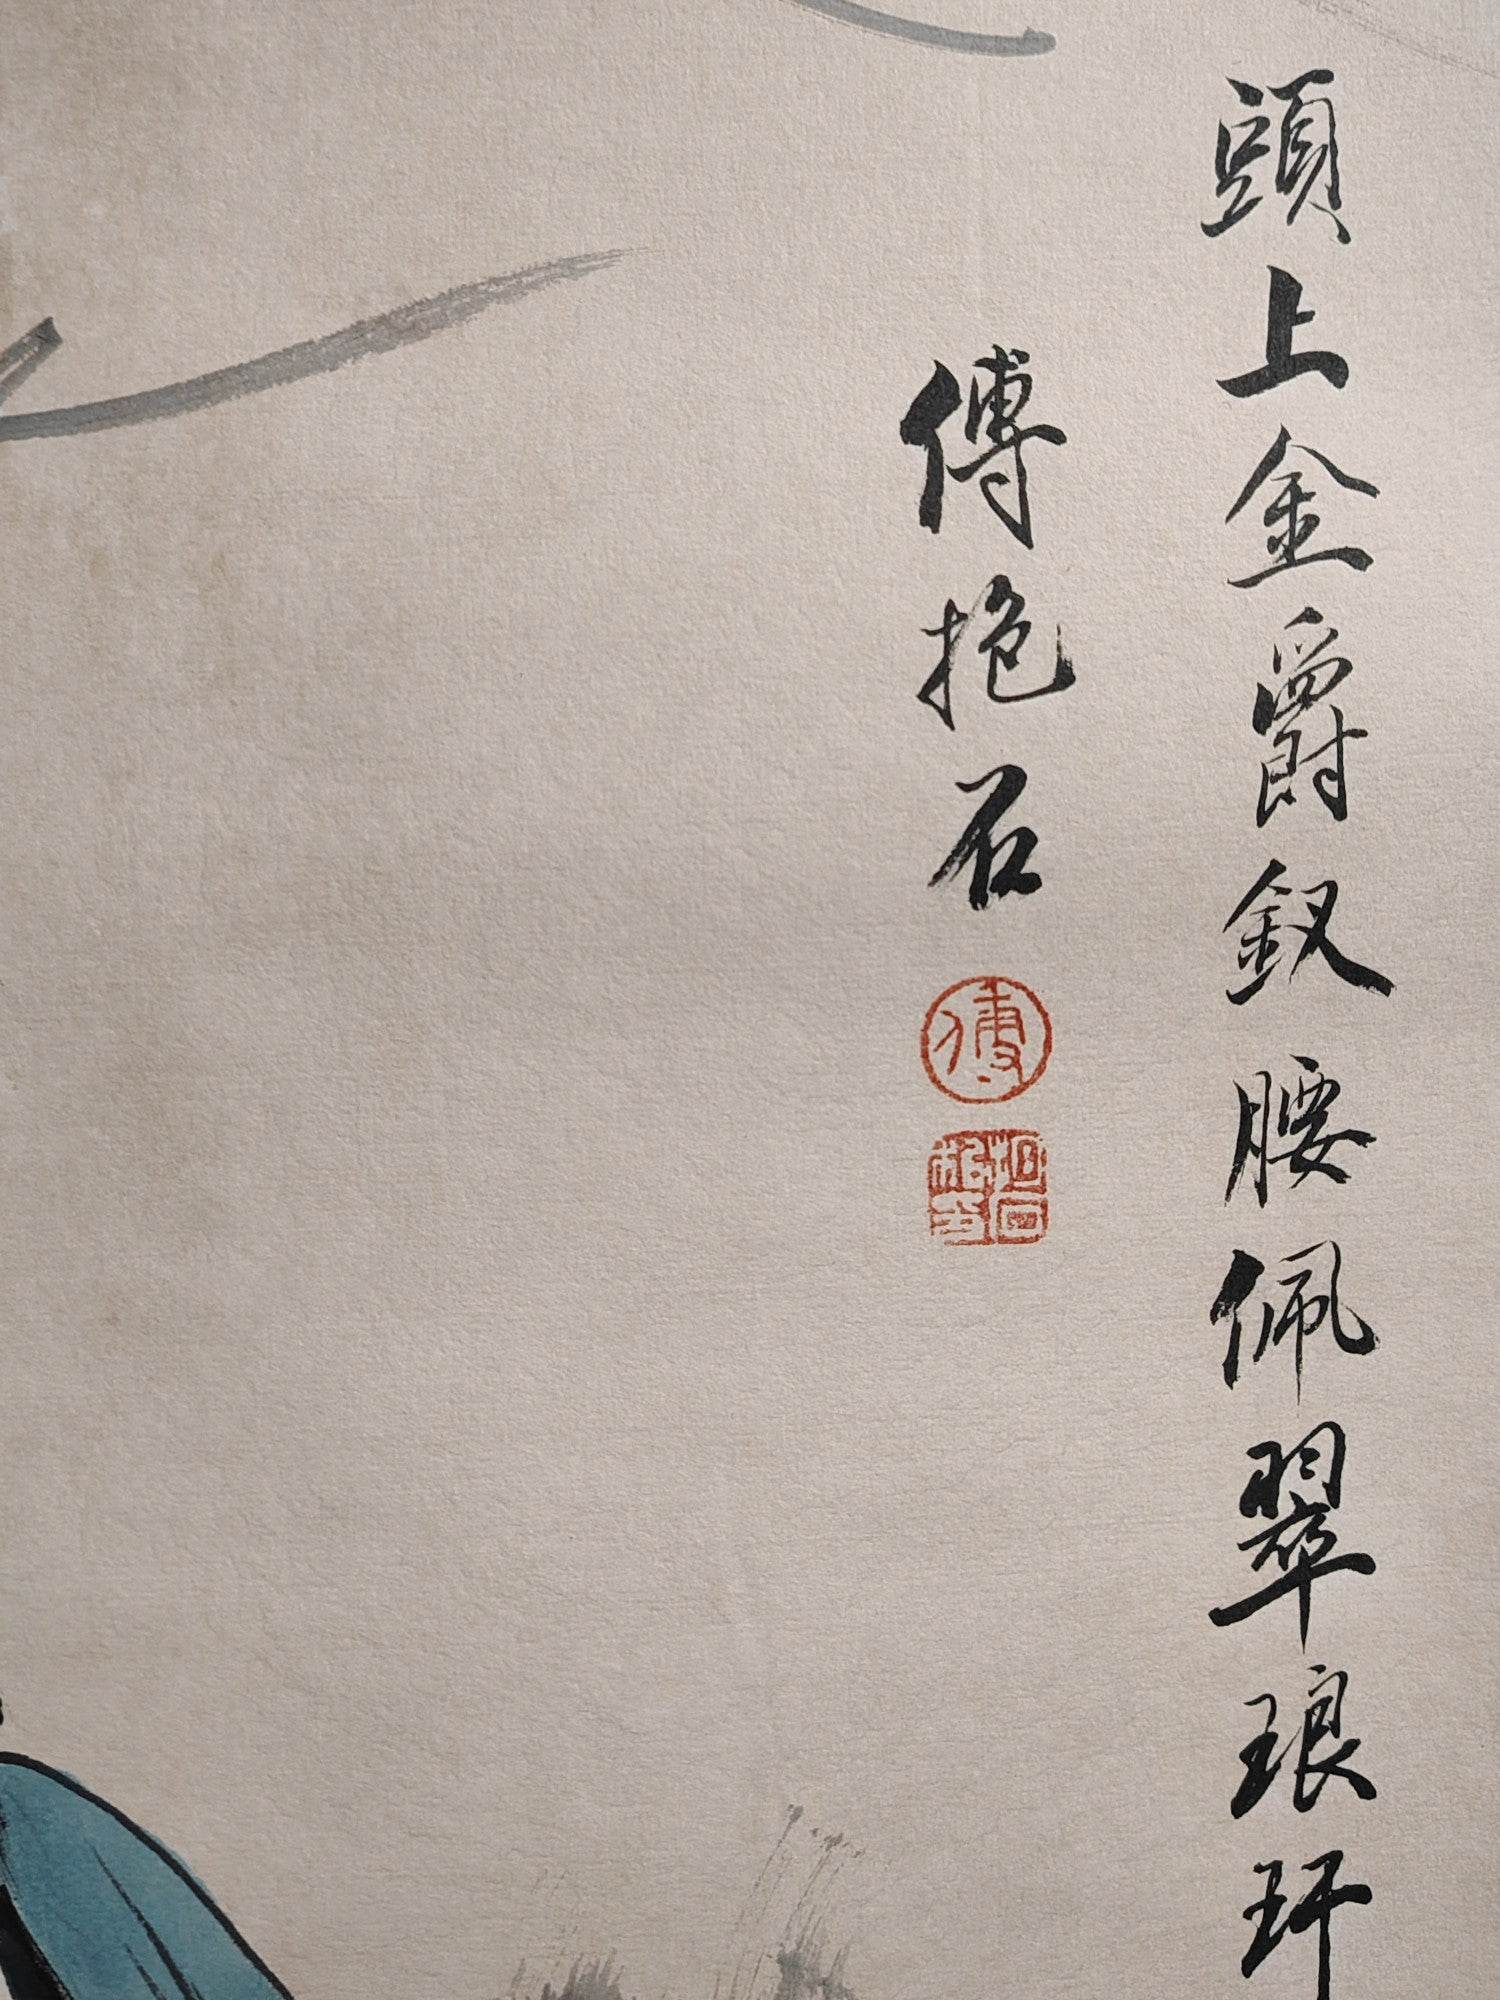 頭上金爵釵腰佩翠琅玕
傅抱石
傅